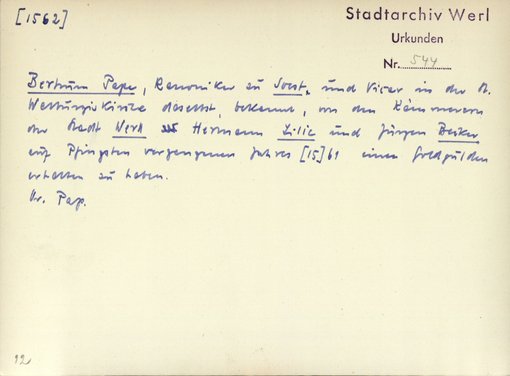 [1562]
Stadtarchiv Werl
Urkunden
Nr. 544
Bertram Pape, Kanoniker zu Soest, und Vicar in der St.
Walburgiskirche daselbst, bekennt, von den Kämmerern
der Stadt Werl Hermann Lilie und Jürgen Becker
auf Pfingsten vergangenen Jahres [15]61 einen Goldgulden
erhalten zu haben.
Or. Pap.
92